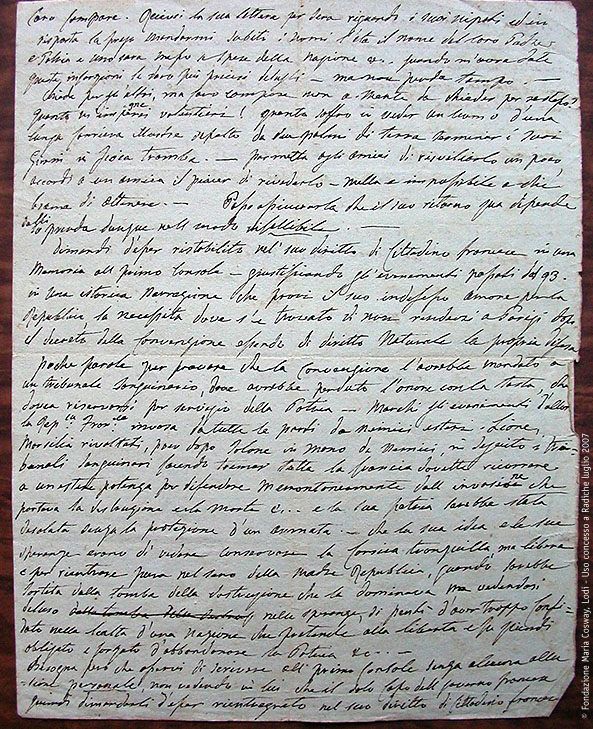 Caro Compare. Ricevei la sua lettera per sera riguardo i suoi nipoti ed in
risposta la prego mandarmi subito i nomi l'età il nome del loro Padre
e Patria e una sara a spese della nazione &c. quando m'avra dato
queste informazioni le daro più precisi detagli — ma non perda tempo —
Chiede per gli altri, ma caro compare non a niente da chieder per se stesso?
quanto volentieri! quanto soffro in veder un uomo d'una
lunga carriera illustre da due palmi di terra terminar i suoi
Giorni — permetta agli amici di risvegliarlo un poco,
accordi a un amica il piacer di rivederlo — nulla e impossibile a chi
brama di ottenere — assicurarla che il suo ritorno qua dipende
lo prenda dunque nell modo infallibile. —
Dimandi d'esser ristabilito nel suo diritto di Cittadino francese in una
Memoria al primo Console — giustificando gl'evenimenti passati del 93 —
in una istorica Narrazione che provi il suo indefesso amore per la
Republica la necessità dove s'è trovato di non rendersi a Parigi dopo
il decreto della Convenzione essendo di diritto Naturale la propria difesa
Poche parole per provare che la Convenzione l'avrebbe mandato a
un tribunale Sanguinario, dove avrebbe perduto l'onore con la testa che
dovea riservarsi per servizio della Patria — Marchi gli evenimenti d'allora
la Rep.ca Fran.sa invasa da tutte le parti da nemici esterni. Leone,
Marsilia rivoltati, poco dopo Tolone in mano de nemici, in seguito i tri-
bunali Sanguinari facendo tremar tutta la francia dovette ricorrere
a un estera potenza per difendere momentaneamente dall' invasione che
portava la distruzione e la Morte &... e la sua patria sarebbe stata
desolata senza la protezione d'un armata — che la sua idea e le sue
speranze erano di vedere conservare la Corsica tranquilla, ma libera
e per rientrare pura nel seno della madre Republica, quando sarebbe
sortita dalla tomba della distruzione che la dominava ma vedendosi
deluso nelle speranze, di d'aver troppo confi-
dato nella lealtà d'una nazione che pretende alla libertà e fu quindi
obligato e forzato d'abbandonare la Patria &c... —
Bisogna però che procuri di scrivere all primo Console senza alcuna allu-
sione personale, non vedendo in lui che il solo Capo dell governo francese
quindi dimandarli d'esser rientegrato nel suo diritto di Cittadino francese
© Fondazione Maria Cosway, Lodi - Uso concesso a Radiche luglio 2007